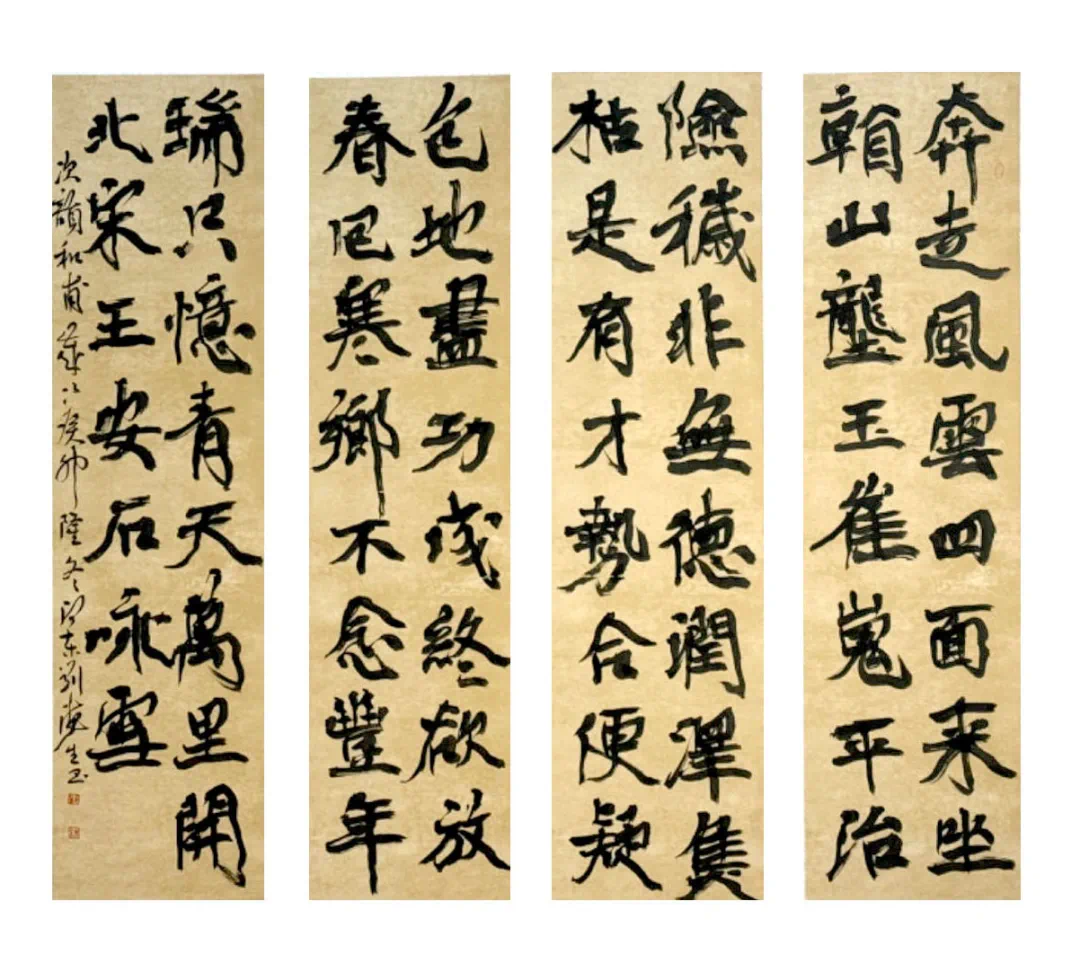 奔走風雲四面来坐
看山壟玉崔嵬平治
險穢非無德潤澤焦
枯是有才勢合便疑
包地盡功成終欲放
春回寒鄉不念豐年
瑞只憶青天萬里開
北宋王安石咏雪
次韻和甫癸卯隆冬東生书